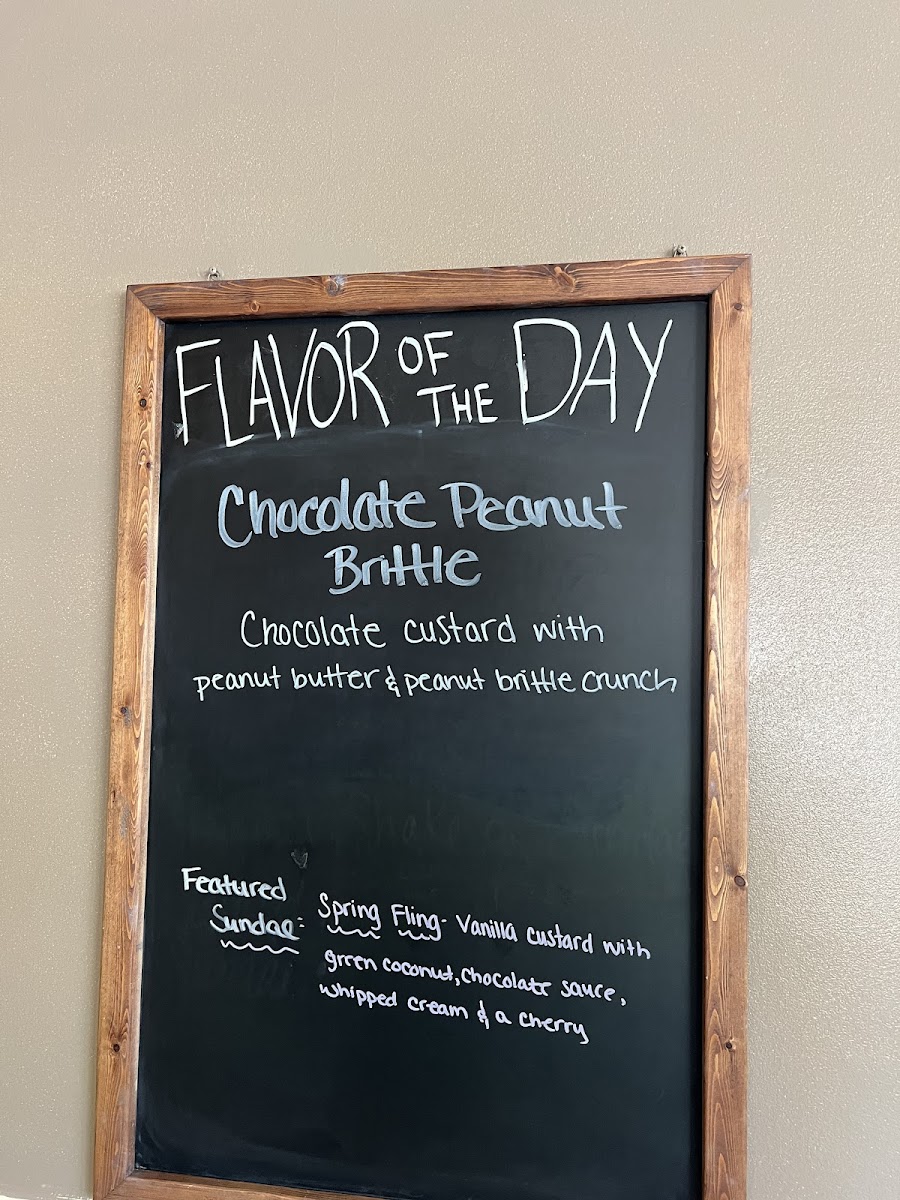 FLAVOR OF THE DAY
Chocolate Peanut
Brittle
Chocolate custard with
peanut butter & peanut brittle crunch
Featured
Sundae:
Spring Fling- Vanilla custard with
green coconut, chocolate sauce,
whipped cream & a cherry